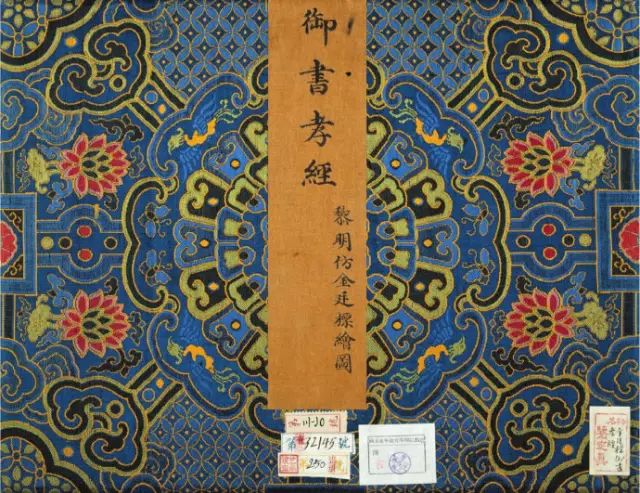 御書孝經
黎明仿金廷標繪圖
川-10
第32145號
250
鑒定真